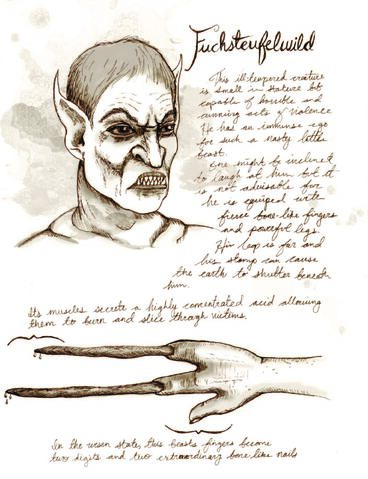 Fuchsteufelwild
This ill-tempered creature
is small in stature but
capable of horrible and
cunning acts of violence.
He has an immense ego
for such a nasty little
beast.
One might be inclined
to laugh at him but it
is not advisable for
he is equiped with
fierce bone-like fingers
and powerful legs.
His leap is far and
his stomp can cause
the earth to shutter beneath
him.
Its muscles secrete a highly concentrated acid allowing
them to burn and slice through victims.
In the wesen state, this beasts fingers become
two digits and two extraordinary bone-like nails